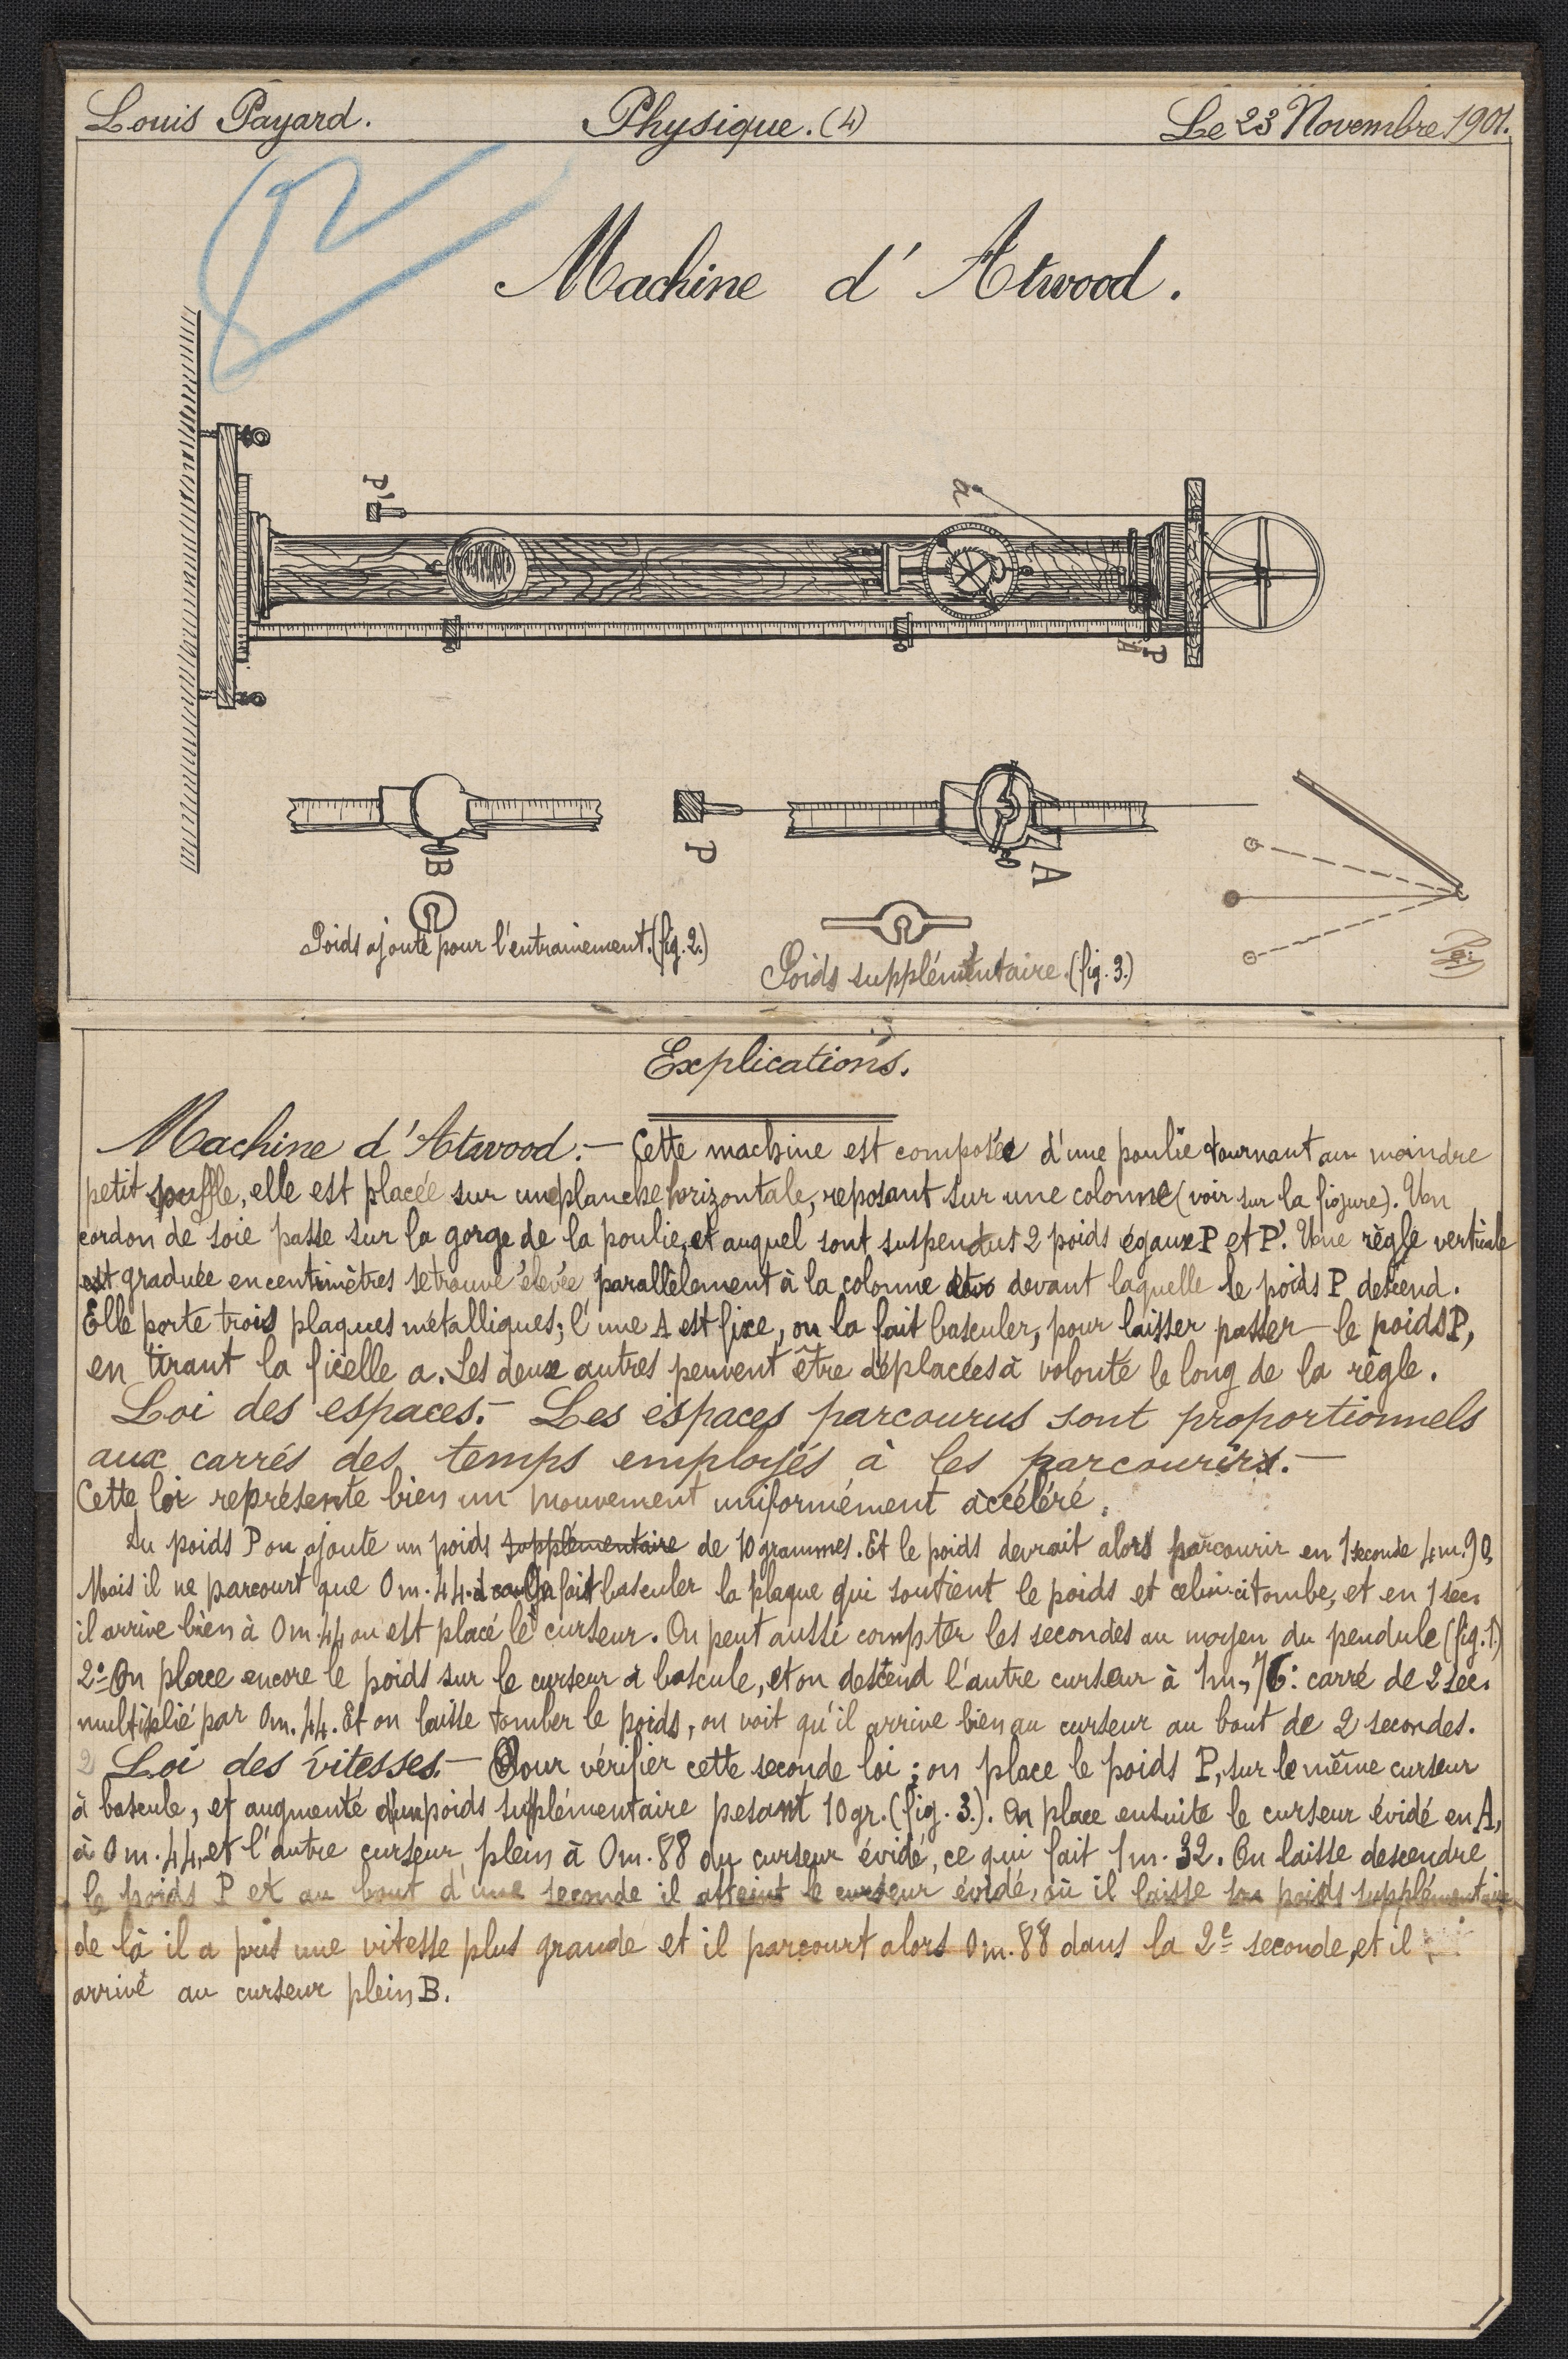 Louis Payard. Physique. (4) Le 23 Novembre 1901.
Machine d'Atwood.
P'
a
A P
B
P
A
Poids ajouté pour l'entrainement. (fig. 2.)
Poids supplémentaire. (fig. 3.)
Explications.
Machine d'Atwood. — Cette machine est composée d'une poulie tournant au moindre
petit souffle, elle est placée sur une planche horizontale, reposant sur une colonne (voir sur la figure). Un
cordon de soie passe sur la gorge de la poulie, et auquel sont suspendus 2 poids égaux P et P'. Une règle verticale
est graduée en centimètres se trouve élevée parallèlement à la colonne devant laquelle le poids P descend.
Elle porte trois plaques métalliques; l'une A est fixe, on la fait basculer, pour laisser passer le poids P,
en tirant la ficelle a. Les deux autres peuvent être déplacées à volonté le long de la règle.
Loi des espaces. — Les espaces parcourus sont proportionnels
aux carrés des temps employés à les parcourirs. —
Cette loi représente bien un mouvement uniformément accéléré.
Au poids P on ajoute un poids supplémentaire de 10 grammes. Et le poids devrait alors parcourir en 1 seconde 4m.90
Mais il ne parcourt que 0m.44. On fait basculer la plaque qui soutient le poids et celui-ci tombe, et en 1 sec.
il arrive bien à 0m.44 ou est placé le curseur. On peut aussi compter les secondes au moyen du pendule (fig. 1.)
2º On place encore le poids sur le curseur à bascule, et on descend l'autre curseur à 1m.76: carré de 2 sec.
multiplié par 0m.44. Et on laisse tomber le poids, on voit qu'il arrive bien au curseur au bout de 2 secondes.
2 Loi des vitesses. — Pour vérifier cette seconde loi; on place le poids P, sur le même curseur
à bascule, et augmenté d'un poids supplémentaire pesant 10 gr. (fig. 3.). On place ensuite le curseur évidé en A,
à 0m.44, et l'autre curseur plein à 0m.88 du curseur évidé, ce qui fait 1m.32. On laisse descendre
le poids P et au bout d'une seconde il atteint le curseur évidé, où il laisse son poids supplémentaire
de là il a pris une vitesse plus grande et il parcourt alors 0m.88 dans la 2e seconde, et il
arrive au curseur plein B.